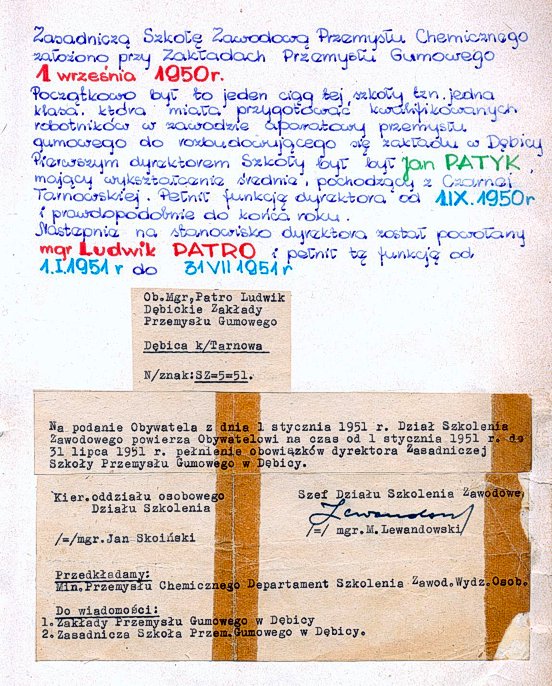 Zasadniczą Szkołę Zawodową Przemysłu Chemicznego
założono przy Zakładach Przemysłu Gumowego
1 września 1950r.
Początkowo był to jeden ciąg tej szkoły tzn. jedna
klasa, która miała przygotować kwalifikowanych
robotników w zawodzie aparatowy przemysłu
gumowego do rozbudowującego się zakładu w Dębicy
Pierwszym dyrektorem Szkoły był był Jan PATYK,
mający wykształcenie średnie, pochodzący z Czarnej
Tarnowskiej. Pełnił funkcję dyrektora od 1.IX.1950r
i prawdopodobnie do końca roku.
Następnie na stanowisko dyrektora został powołany
mgr Ludwik PATRO i pełnił tę funkcję od
1.I.1951 r do 31 VII 1951 r
Ob.Mgr,Patro Ludwik
Dębickie Zakłady
Przemysłu Gumowego
Dębica k/Tarnowa
N/znak:SZ=5=51.
Na podanie Obywatela z dnia 1 stycznia 1951 r. Dział Szkolenia
Zawodowego powierza Obywatelowi na czas od 1 stycznia 1951 r. do
31 lipca 1951 r. pełnienie obowiązków dyrektora Zasadniczej
Szkoły Przemysłu Gumowego w Dębicy.
Kier.oddziału osobowego
Działu Szkolenia
/=/mgr.Jan Skoiński
Szef Działu Szkolenia Zawodowe
Lewandowski
/=/ mgr.M.Lewandowski
Przedkładamy:
Min.Przemysłu Chemicznego Departament Szkolenia Zawod.Wydz.Osob.
Do wiadomości:
1.Zakłady Przemysłu Gumowego w Dębicy
2.Zasadnicza Szkoła Przem.Gumowego w Dębicy.